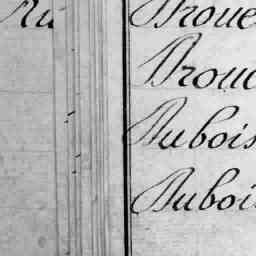 Droue
Droue
Dubois
Duboi